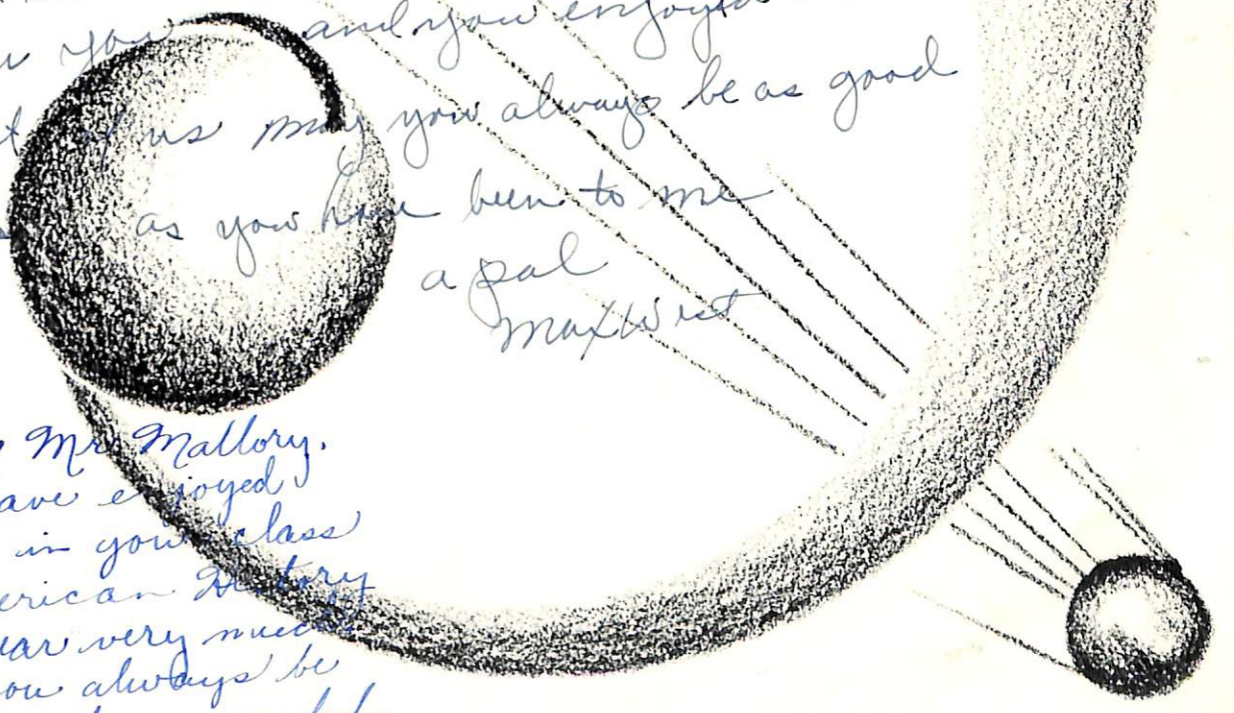 you and you enjoyed
of us may you always be as good
as you have been to me
a pal
Max West
Mr. Mallory.
ave enjoyed
in your class
erican History
ear very much
ou always be